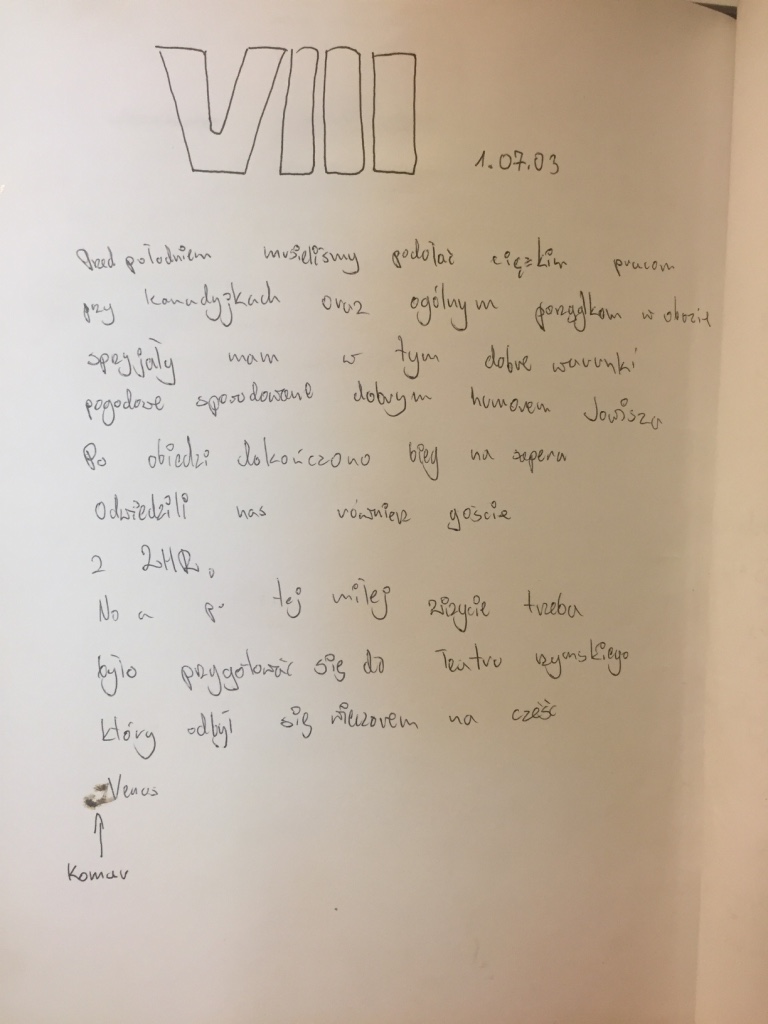 VIII
1.07.03
Przed południem musieliśmy podołać ciężkim pracom
przy kanadyjkach oraz ogólnym porządkom w obozie
sprzyjały nam w tym dobre warunki
pogodowe spowodowane dobrym humorem Jowisza
Po obiedzi dokończono bieg na sapera
Odwiedzili nas również goście
z ZHR.
No a po tej miłej wizycie trzeba
było przygotować się do Teatru rzymskiego
który odbył się wieczorem na cześć
Venus
Komar